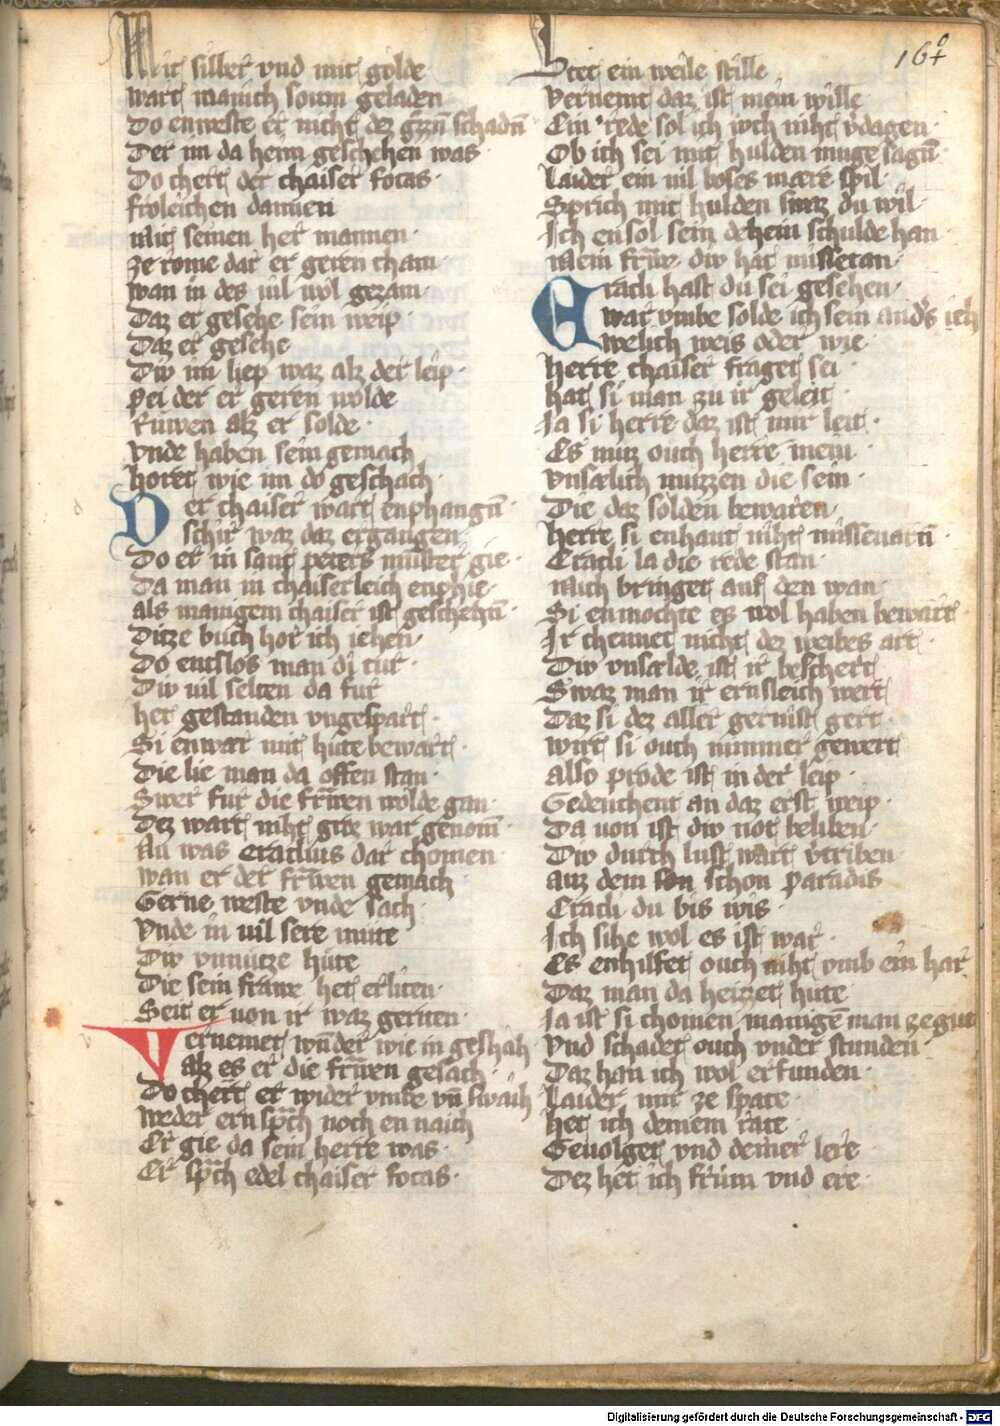 Mit silber vnd mit golde
wart manich soum geladen
Do enweste er nicht dez grozn̄ schadn̄
Der im da heim geschehen was
Do chert der chaiser focas
froleichen dannen
Mit seinen her mannen
ze rome dar er geren cham
wan in des uil wol gezam
Daz er gesehe sein weip
Daz er gesehe
Diw im liep waz alz der leip
Pei der er geren wolde
Ruwen alz er solde
Vnde haben sein gemach
horet wie im do geschach
Der chaiser wart enphangn̄
schir waz daz ergangen
Do er in sant peters munster gie
Da man in chaiserleich enphie
als manigem chaiser ist geschehn̄
Ditze buch hor ich iehen
Do entslos man di tur
Diw uil selten da fur
het gestanden vngespart
Si enwar mit hute bewart
Die lie man da offen stan
Swer fur die frǒwen wolde gan
Dez wart niht war genom̄
Nu was eraclius dar chomen
wan er der frǒwen gemach
Gerne weste vnde sach
Vnde in uil sere mute
Diw vnnutze hute
Die sein frawe het erliten
Seit er uon ir waz geriten
Vernemet wūder wie in geshah
alz es er die frǒwen gesach
Do chert er wider vmbe vn̄ swaih
Weder ern sprach noch en naich
Er gie da sein herre was
Er sprach edel chaiser focas
Biet ein weile stille
Vernemt daz ist mein wille
Ein rede sol ich iwch niht v̓dagen
Ob ich sei mit hulden muge sagn̄
Laider ein uil boses mære spil
Sprich mit hulden swaz du wil
Ich ensol sein dehein schulde han
Mein frǒwe diw hat missetan
Eracli hast du sei gesehen
war vmbe solde ich sein and̓s ieh
welich weis oder wie
Herre chaiser fraget sei
hat si man zu ir geleit
Ja si herre daz ist mir leit
Es muz ouch herre mein
Vnsælich muzzen die sein
Die daz solden bewaren
Herre si enhant niht missevarn̄
Eracli la die rede stan
Mich bringet auf den wan
Si enmochte es wol haben bewart
Ir chennet nicht dez weibes art
Diw vnsælde ist ir beschert
Swaz man ir ernsleich wert
Daz si dez aller gernist gert
wirt si ouch nimmer gewert
also prode ist in der leip
Gedenchent an daz erst weip
Da uon ist diw not beliben
Diw durch lust wart v̓triben
auz dem schon paradis
Eracli du bis wis
Ich sihe wol es ist war
Es enhilfet ouch niht vmb ein har
Daz man da heizzet hute
Ja ist si chomen manigē man ze gut
Vnd schadet ouch vnder stunden
Daz han ich wol erfunden
Laider mir ze spate
Het ich deinem rate
Geuolget vnd deiner lere
Dez het ich frum vnd ere
Digitalisierung gefördert durch die Deutsche Forschungsgemeinschaft - DFG